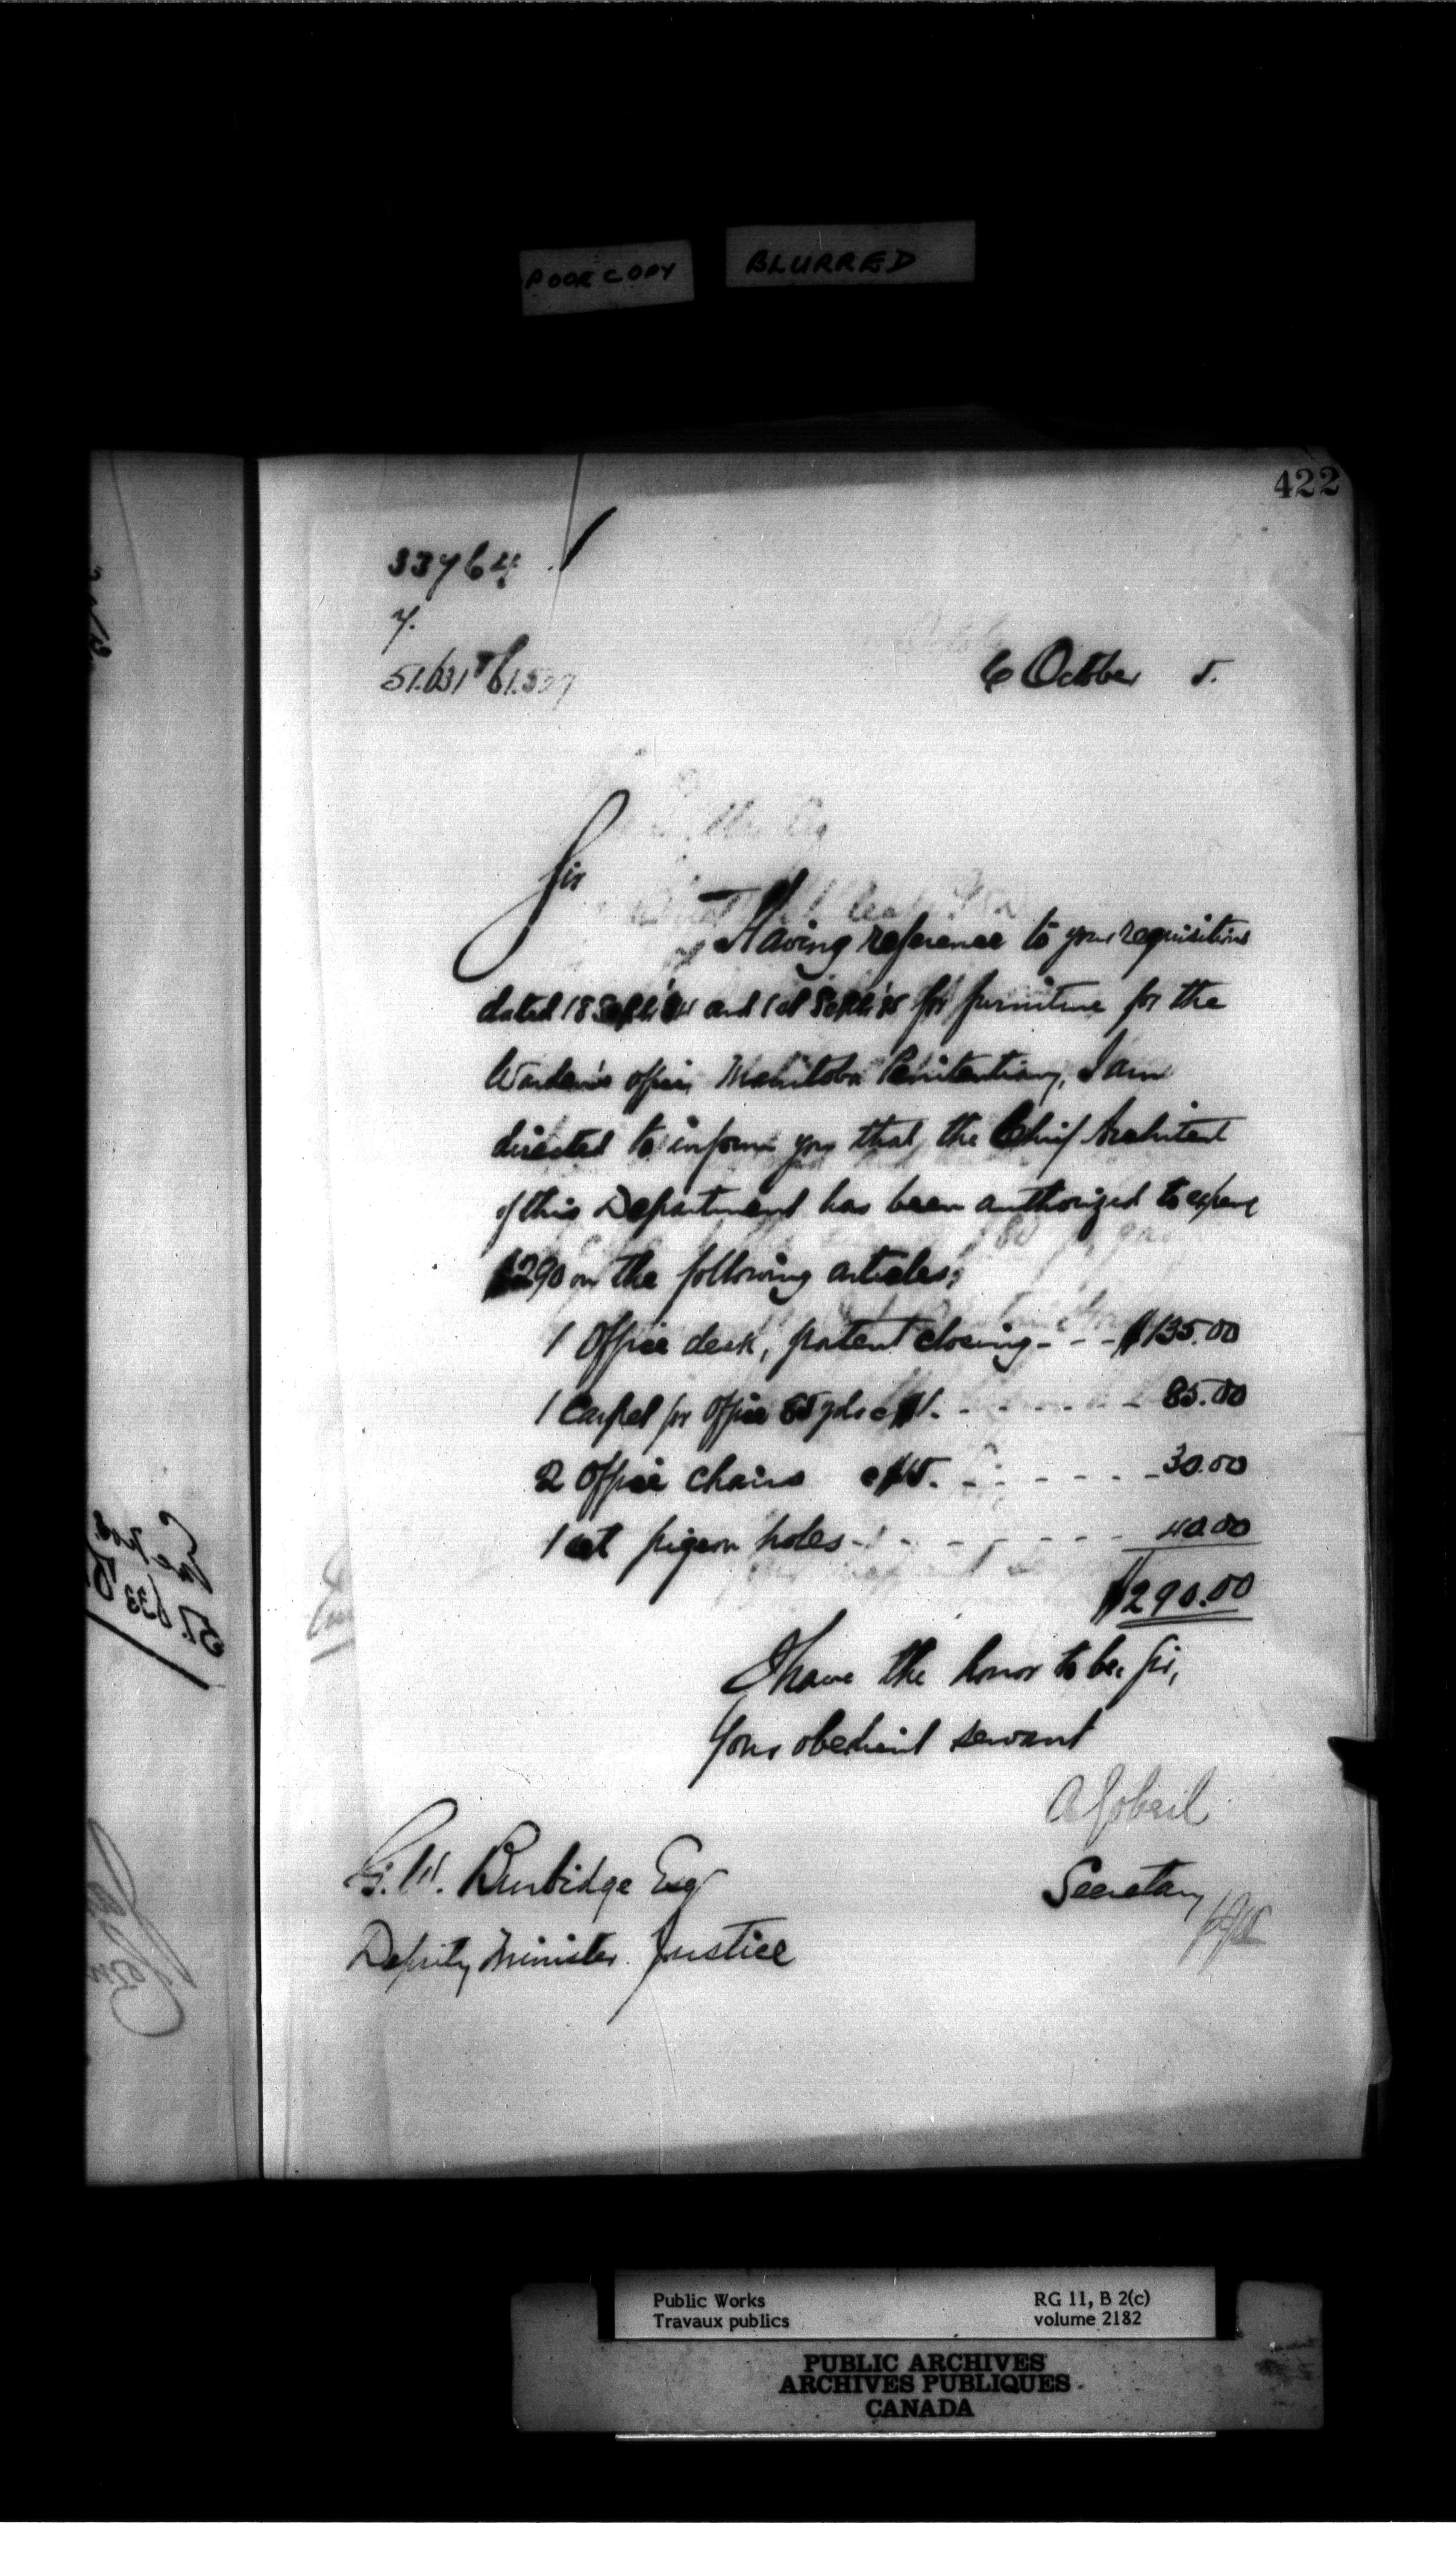 POOR COPY BLURRED
422
33764
7.
51.631
6 October 5.
Sir
Having reference to your requisitions
dated 18 Sept. '84 and 1st Sept. '85 for furniture for the
Warden's office, Manitoba Penitentiary, I am
directed to inform you that the Chief Architect
of this Department has been authorized to expend
$290 on the following articles:
1 Office desk, patent closing - - - $135.00
1 Carpet for office 85 yds @ $1. - - - - - - 85.00
2 Office chairs @ $15. - - - - - - 30.00
1 set pigeon holes - - - - - - 40.00
$290.00
I have the honor to be, Sir,
Your obedient servant
A Gobeil
Secretary
G. W. Burbidge Esq
Deputy Minister Justice
Public Works RG 11, B 2(c)
Travaux publics volume 2182
PUBLIC ARCHIVES
ARCHIVES PUBLIQUES
CANADA